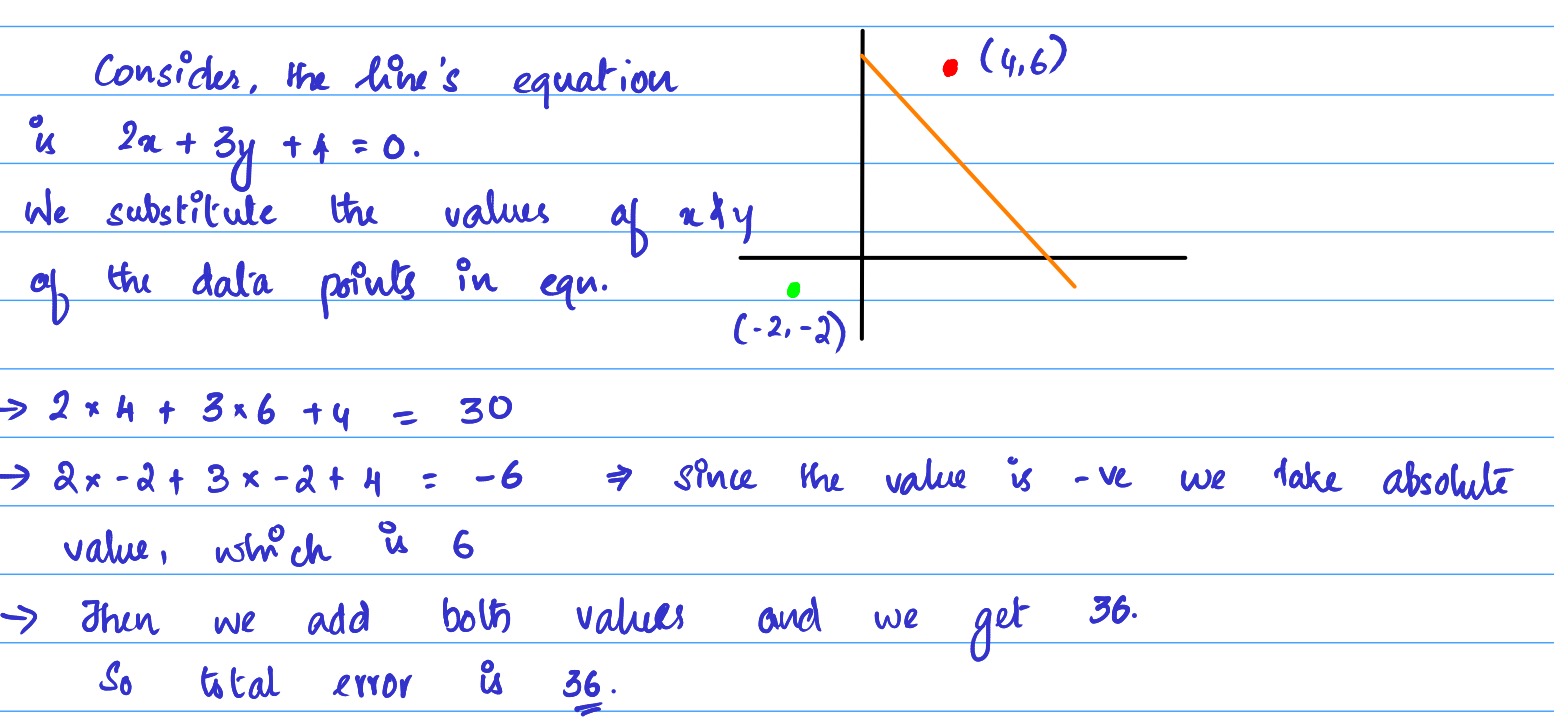 Consider, the line's equation
is 2x + 3y + 4 = 0.
We substitute the values of x & y
of the data points in equ.
(4,6)
(-2,-2)
→ 2 × 4 + 3 × 6 + 4 = 30
→ 2 × -2 + 3 × -2 + 4 = -6 ⇒ since the value is -ve we take absolute
value, which is 6
→ Then we add both values and we get 36.
So total error is 36.